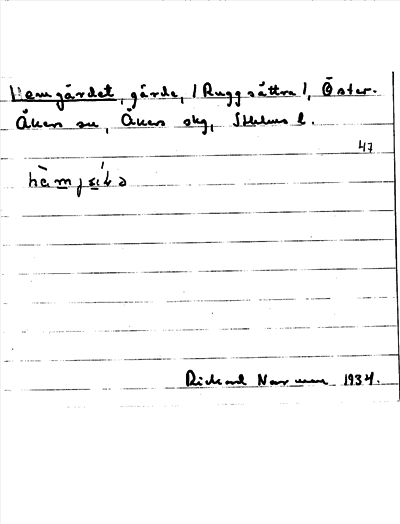 Hemgärdet, gärde, (Ruggsättra), Öster-
Åkers sn, Åkers skg, Sthlms l.
47
Rickard Norman 1934.